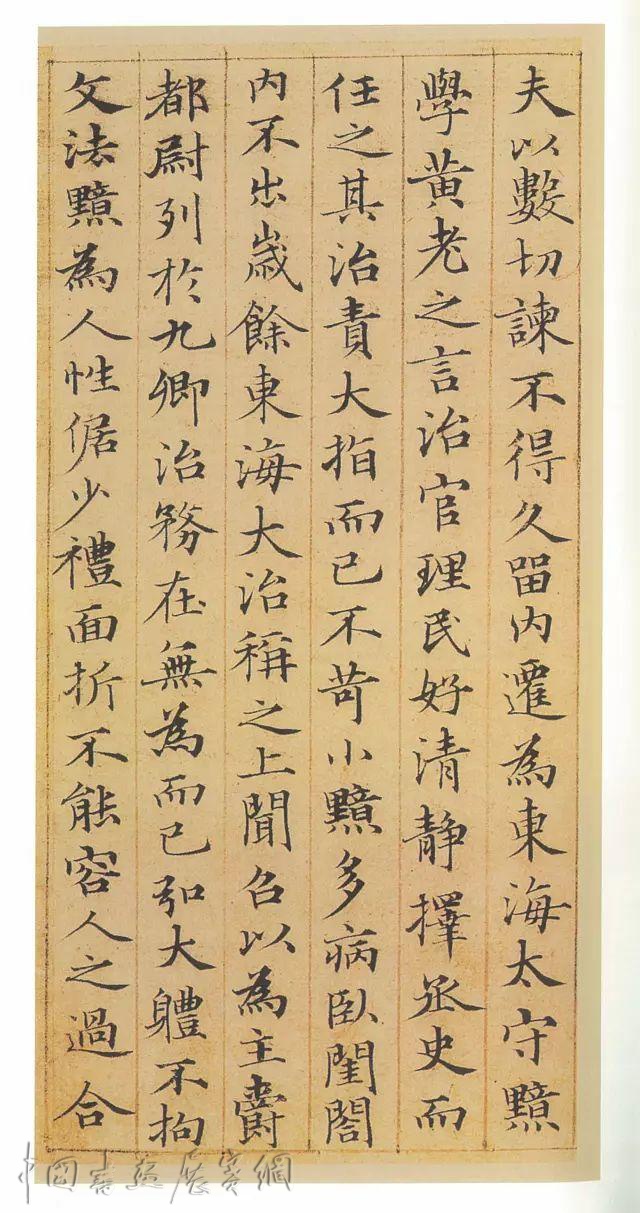 夫以數切諫不得久留内遷為東海太守黯
學黄老之言治官理民好清静擇丞史而
任之其治責大指而已不苛小黯多病臥閨閤
内不出歲餘東海大治稱之上聞召以為主爵
都尉列於九卿治務在無為而已弘大軆不拘
文法黯為人性倨少禮面折不能容人之過合
中國書法展賽網